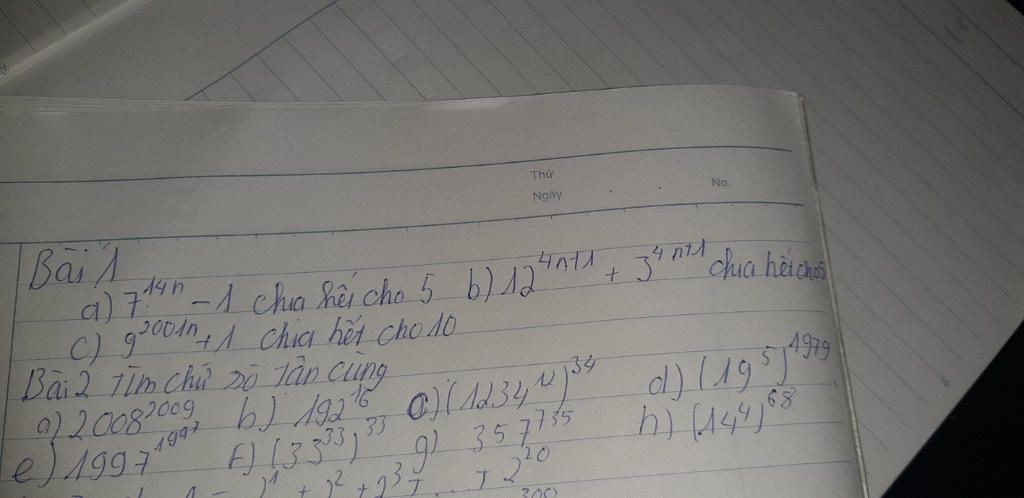 Thứ
Ngày No.
Bài 1
a) 7^14n - 1 chia hết cho 5 b) 12^4n+1 + 3^4n+1 chia hết cho 5
c) 9^2001n + 1 chia hết cho 10
Bài 2 Tìm chữ số tận cùng
a) 2008^2009 b) 192^16 c) (1234^12)^34 d) (19^5)^1979
e) 1997^1997 f) (33^33)^33 g) 357^735 h) (14^4)^68
2^1 + 2^2 + 2^3 + ... + 2^20